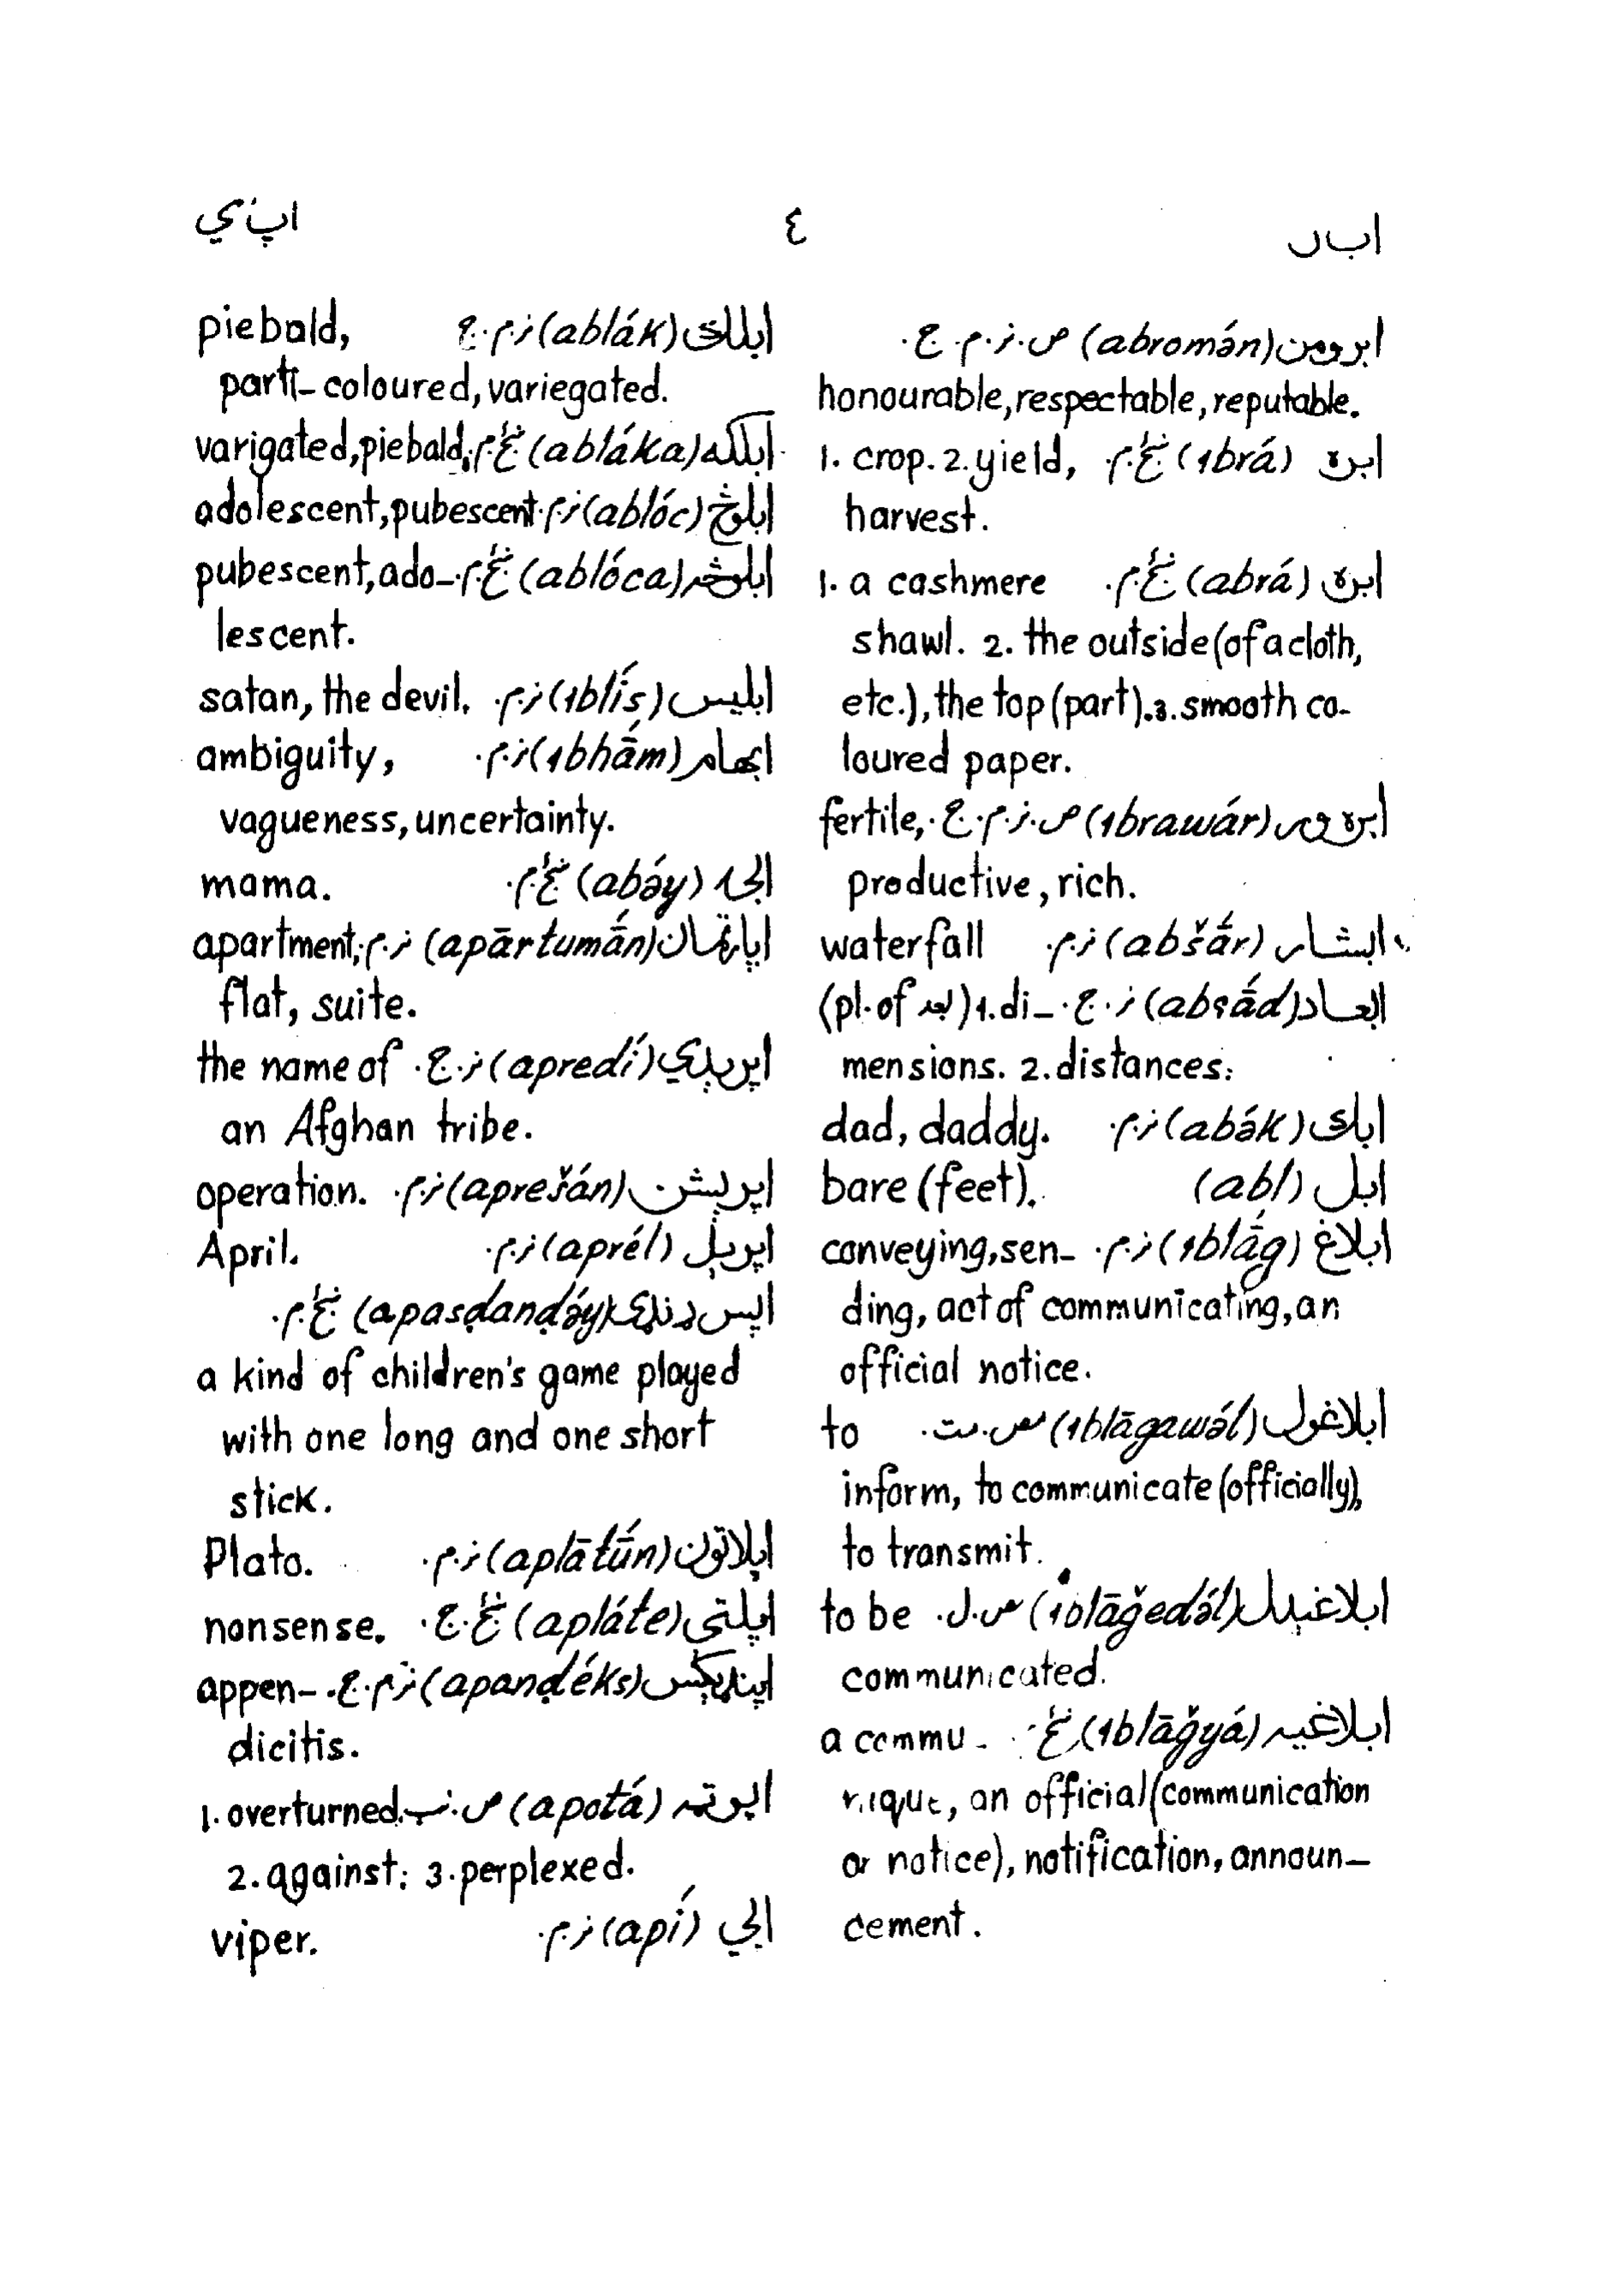 ابر ٤ اپ‌ي
ابرومن (abromán) ص. ز. م. ج.
honourable, respectable, reputable.
ابره (ıbrá) ښځ. م. 1. crop. 2. yield,
harvest.
ابره (abrá) ښځ. م. 1. a cashmere
shawl. 2. the outside (of a cloth,
etc.), the top (part). 3. smooth co-
loured paper.
ابره ور (ıbrawár) ص. ز. م. ج. fertile,
productive, rich.
ابشار (abšā́r) ز. م. waterfall
ابعاد (absā́d) ز. ج. (pl. of بعد) 1. di-
mensions. 2. distances.
اباک (abák) ز. م. dad, daddy.
ابل (abl) bare (feet).
ابلاغ (ıblā́g) ز. م. conveying, sen-
ding, act of communicating, an
official notice.
ابلاغول (ıblāgawə́l) مص. مت. to
inform, to communicate (officially),
to transmit.
ابلاغېدل (ıblāğedə́l) مص. ل. to be
communicated.
ابلاغیه (ıblāğyá) ښځ. a commu-
nique, an official (communication
or notice), notification, announ-
cement.
ابلک (ablák) ز. م. ج. piebald,
parti-coloured, variegated.
ابلکه (abláka) ښځ. م. varigated, piebald.
ابلوڅ (ablóc) ز. م. adolescent, pubescent.
ابلوڅه (ablóca) ښځ. م. pubescent, ado-
lescent.
ابلیس (ıblís) ز. م. satan, the devil.
ابهام (ıbhā́m) ز. م. ambiguity,
vagueness, uncertainty.
ابۍ (abə́y) ښځ. م. mama.
اپارتمان (apārtumā́n) ز. م. apartment,
flat, suite.
اپریدي (apredí) ز. ج. the name of
an Afghan tribe.
اپریشن (aprešán) ز. م. operation.
اپریل (aprél) ز. م. April.
اپس ډنډۍ (apasḍanḍə́y) ښځ. م.
a kind of children's game played
with one long and one short
stick.
اپلاتون (aplātū́n) ز. م. Plato.
اپلتې (apláte) ښځ. ج. nonsense.
اپنډیکس (apanḍéks) ز. م. ج. appen-
dicitis.
اپوټه (apotá) ص. 1. overturned.
2. against. 3. perplexed.
اپي (apí) ز. م. viper.